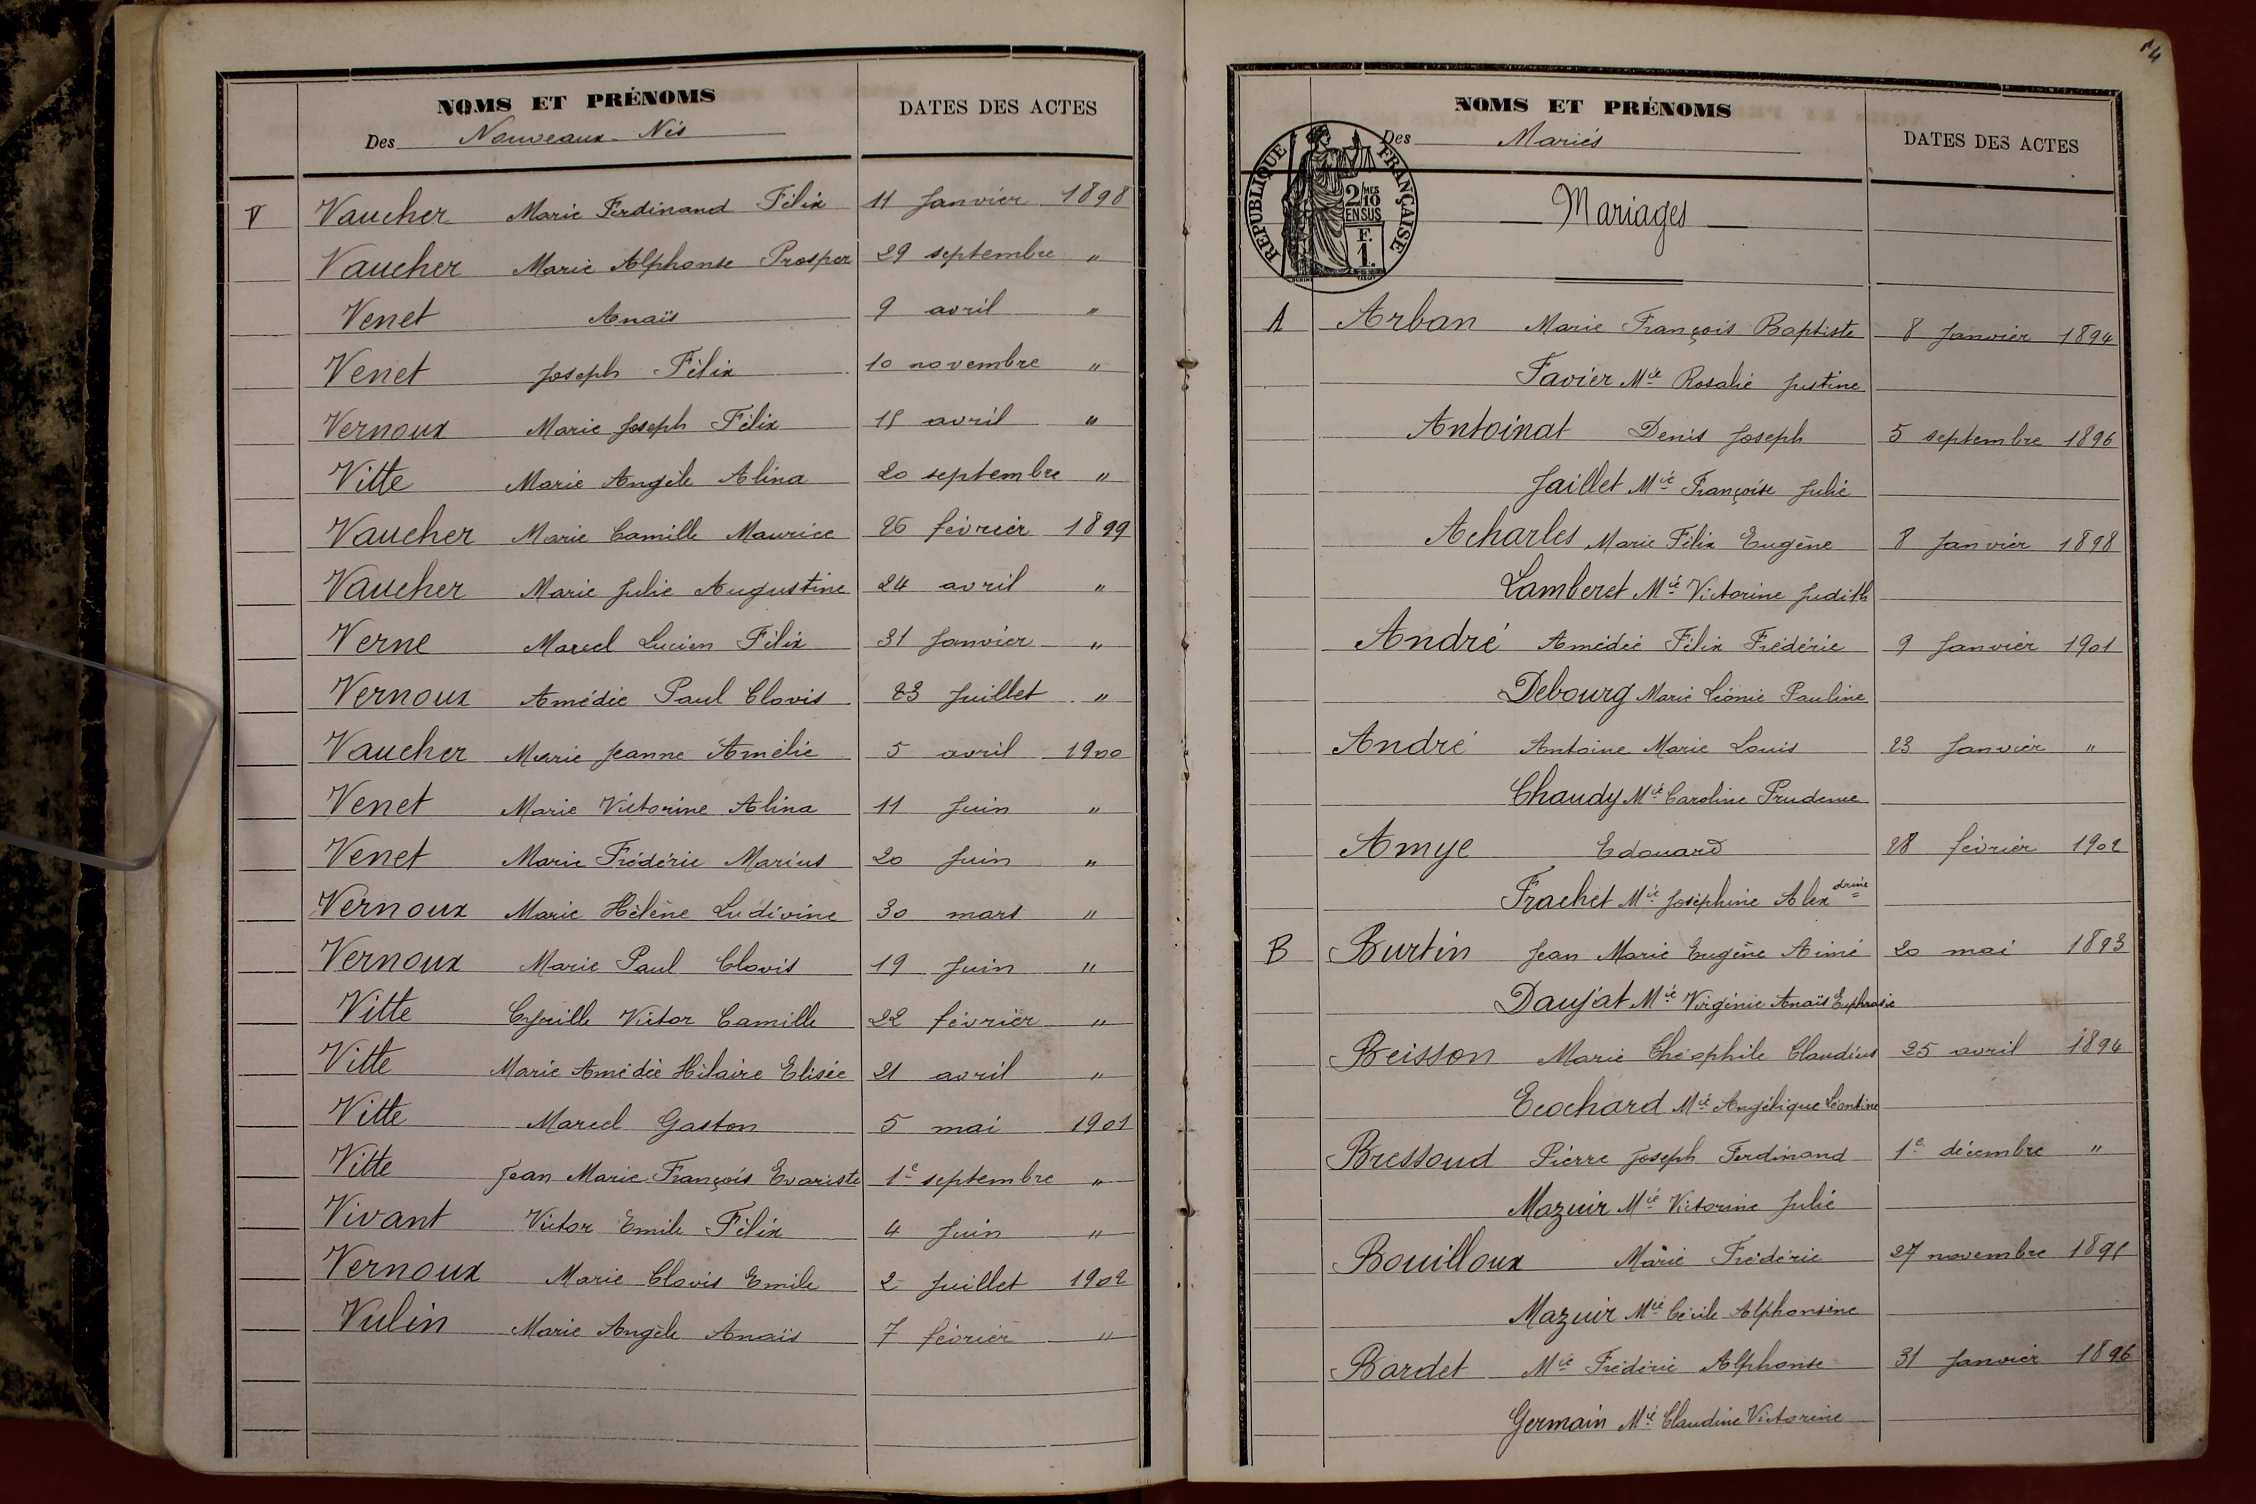 NOMS ET PRÉNOMS
DATES DES ACTES
Des Nouveaux-Nés
V Vaucher Marie Ferdinand Félix 11 Janvier 1898
Vaucher Marie Alphonse Prosper 29 septembre "
Venet Anaïs 9 avril "
Venet Joseph Félix 10 novembre "
Vernoux Marie Joseph Félix 15 avril "
Vitte Marie Angèle Alina 20 septembre "
Vaucher Marie Camille Maurice 26 février 1899
Vaucher Marie Julie Augustine 24 avril "
Verne Marcel Lucien Félix 31 Janvier "
Vernoux Amédée Paul Clovis 23 Juillet "
Vaucher Marie Jeanne Amélie 5 avril 1900
Venet Marie Victorine Alina 11 Juin "
Venet Marie Frédéric Marius 20 Juin "
Vernoux Marie Hélène Ludivine 30 mars "
Vernoux Marie Paul Clovis 19 Juin "
Vitte Cyrille Victor Camille 22 février "
Vitte Marie Amédée Hilaire Elisée 21 avril "
Vitte Marcel Gaston 5 mai 1901
Vitte Jean Marie François Evariste 1e septembre "
Vivant Victor Emile Félix 4 Juin "
Vernoux Marie Clovis Emile 2 Juillet 1902
Vulin Marie Angèle Anaïs 7 février "
14
NOMS ET PRÉNOMS
DATES DES ACTES
Des Mariés
RÉPUBLIQUE FRANÇAISE
2/10MES
EN SUS
F.
1.
Mariages
A Arban Marie François Baptiste 8 Janvier 1894
Favier Mie Rosalie Justine
Antoinat Denis Joseph 5 septembre 1896
Jaillet Mie Françoise Julie
Acharles Marie Félix Eugène 8 Janvier 1898
Lamberet Mie Victorine Judith
André Amédée Félix Frédéric 9 Janvier 1901
Debourg Marie Léonie Pauline
André Antoine Marie Louis 23 Janvier "
Chaudy Mie Caroline Prudence
Amye Edouard 28 février 1902
Frachet Mie Joséphine Alexdrine
B Burtin Jean Marie Eugène Aimé 20 mai 1893
Daujat Mie Virginie Anaïs Euphrasie
Beisson Marie Théophile Claudius 25 avril 1894
Ecochard Mie Angélique Léontine
Bressoud Pierre Joseph Ferdinand 1e décembre "
Mazuir Mie Victorine Julie
Bouilloux Marie Frédéric 27 novembre 1895
Mazuir Mie Cécile Alphonsine
Bardet Mie Frédéric Alphonse 31 Janvier 1896
Germain Mie Claudine Victorine